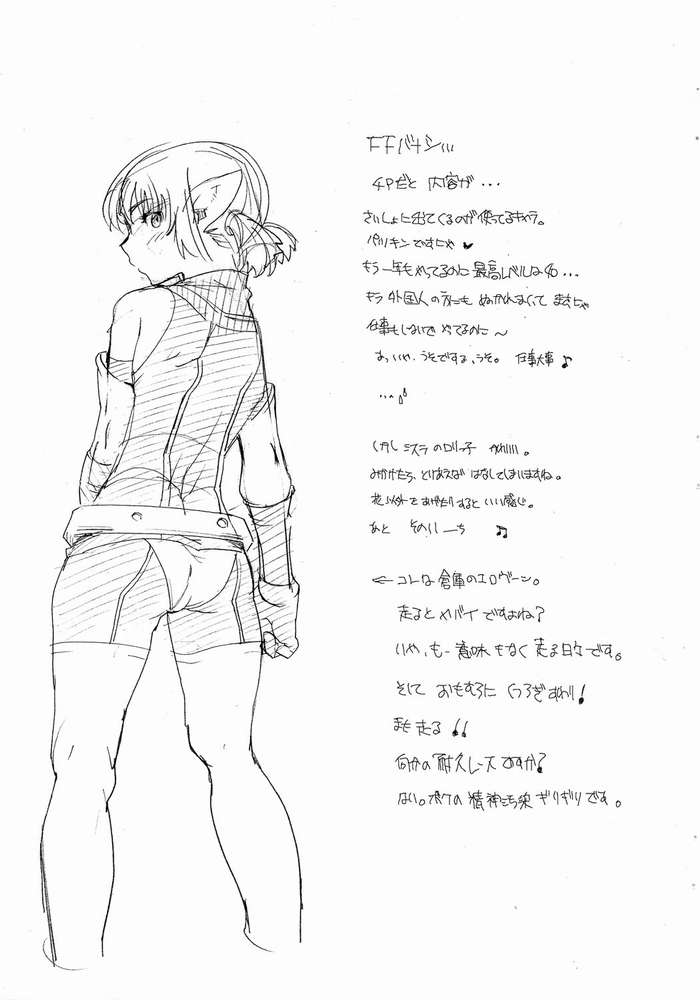 FFバナシ,,,
4Pだと 内容が...
さいしょに出てくるのが使ってるキャラ。
パツキンですにゃ♥
もう一年もやってるのに最高レベルは40...
もう外国人の方にも ぬかれまくってますにゃ
仕事もしないでやってるのに〜
あ、いや、うそですよ、うそ。 仕事大事♪
...♪
しかし ミスラのロリっ子 かわいい。
みかけたら、とりあえず はなしてしまいますね。
あと そのいーち ♫
← コレな倉庫のエロヴーン。
走るとヤバイですよね?
いや、も一意味もなく走る日々です。
そして おもむろに くつろぎすわり!
また走る!!
何かの耐久レースですか?
ない。ボクの精神汚染ギリギリです。